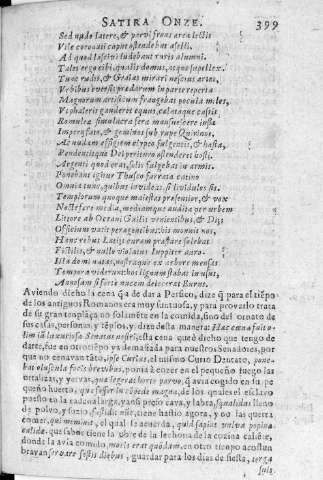 SATIRA ONZE. 399
Sed nudo latere, & parvi frons area lectis
Vile coronati caput ostendebat aselli,
Ad quod lascivi ludebant ruris alumni.
Tales ergo cibi, qualis domus, atque supellex.
Tunc rudis, & Graias mirari nescius artes,
Vrbibus eversis prædarum in parte reperta
Magnorum artificum frangebat pocula miles,
Vt phaleris gauderet equus, cælataque cassis
Romuleæ simulacra feræ mansuescere iussæ
Imperij fato, & geminos sub rupe Quirinos,
Ac nudam effigiem clypeo fulgentis, & hasta,
Pendentisque Dei perituro ostenderet hosti.
Argenti quod erat, solis fulgebat in armis.
Ponebant igitur Thusco farrata catino
Omnia tunc, quibus invideas, si lividulus sis.
Templorum quoque maiestas præsentior, & vox
Nocte fere media, mediamque audita per urbem
Litore ab Oceani Gallis venientibus, & Dijs
Officium vatis peragentibus, his monuit nos,
Hanc rebus Latijs curam præstare solebat
Fictilis, & nullo violatus Iuppiter auro.
Illa domi natas, nostraque ex arbore mensas
Tempora viderunt: hos lignum stabat in usus,
Annosam si forte nucem deiecerat Eurus.
Aviendo dicho la cena q̃ a de dar a Persico, dize q̃ para el tiẽpo
de los antiguos Romanos era muy suntuosa, y para provarlo trata
de su gran templãça no solamẽte en la comida, sino del ornato de
sus casas, personas, y tẽplos, y dize desta manera: Hæc cena fuit o-
lim iã luxuriosa Senatus nostri; esta cena que è dicho que tengo de
darte, fue en otro tiẽpo ya demasiada para nuestros Senadores, por
que no cenavan tãto, ipse Curius, el mismo Curio Dentato, pone-
bat oluscula focis brevibus, ponia à cozer en el pequeño fuego las
ortalizas, y yervas, quæ legerat horto parvo, q̃ avia cogido en su pe
queño huerto, que
puesto en la cadena larga, y ansi propio cava, y labra, squalidus lleno
de polvo, y suzio, fastidit nũc, tiene hastio agora, y no las querra
comer, qui meminit, el qual se acuerda, quid sapiat vulva popinæ
calidæ, que sabor tiene la ubre de la lechona de la cozina caliẽte,
donde la avia comido, moris erat quondam, en otro tiempo acostum
bravan servare festis diebus, guardar para los dias de fiesta, terga
suis